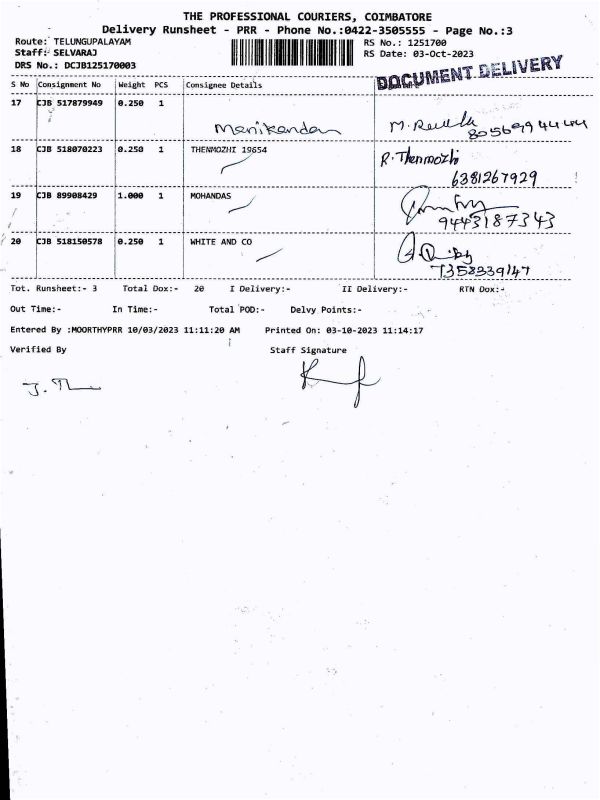 THE PROFESSIONAL COURIERS, COIMBATORE
Delivery Runsheet - PRR - Phone No.:0422-3505555 - Page No.:3
Route: TELUNGUPALAYAM RS No.: 1251700
Staff: SELVARAJ RS Date: 03-Oct-2023
DRS No.: DCJB125170003
DOCUMENT DELIVERY
S No Consignment No Weight PCS Consignee Details
17 CJB 517879949 0.250 1
Manikandan M.
18 CJB 518070223 0.250 1 THENMOZHI 19654 R. Thenmozhi
6381267929
19 CJB 89908429 1.000 1 MOHANDAS
9443187343
20 CJB 518150578 0.250 1 WHITE AND CO
7358339147
Tot. Runsheet:- 3 Total Dox:- 20 I Delivery:- II Delivery:- RTN Dox:-
Out Time:- In Time:- Total POD:- Delvy Points:-
Entered By :MOORTHYPRR 10/03/2023 11:11:20 AM Printed On: 03-10-2023 11:14:17
Verified By Staff Signature